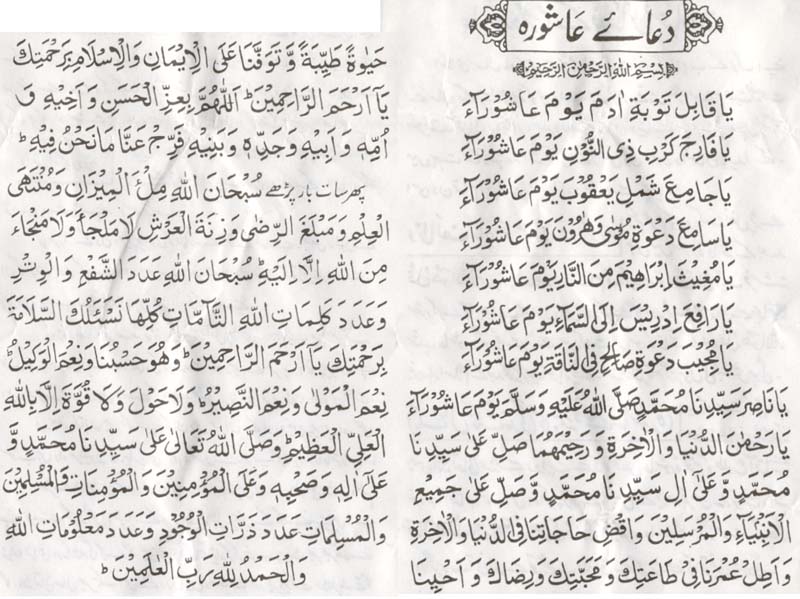 دُعائے عاشورہ
بِسْمِ اللهِ الرَّحْمٰنِ الرَّحِيْمِ
يَا قَابِلَ تَوْبَةِ اٰدَمَ يَوْمَ عَاشُوْرَآءَ
يَا فَارِجَ كَرْبِ ذِی النُّوْنِ يَوْمَ عَاشُوْرَآءَ
يَا جَامِعَ شَمْلِ يَعْقُوْبَ يَوْمَ عَاشُوْرَآءَ
يَا سَامِعَ دَعْوَةِ مُوْسٰى وَهٰرُوْنَ يَوْمَ عَاشُوْرَآءَ
يَا مُغِيْثَ اِبْرَاهِيْمَ مِنَ النَّارِ يَوْمَ عَاشُوْرَآءَ
يَا رَافِعَ اِدْرِيْسَ اِلَى السَّمَآءِ يَوْمَ عَاشُوْرَآءَ
يَا مُجِيْبَ دَعْوَةِ صَالِحٍ فِى النَّاقَةِ يَوْمَ عَاشُوْرَآءَ
يَا نَاصِرَ سَيِّدِنَا مُحَمَّدٍ صَلَّى اللهُ عَلَيْهِ وَسَلَّمَ يَوْمَ عَاشُوْرَآءَ
يَا رَحْمٰنَ الدُّنْيَا وَالْاٰخِرَةِ وَرَحِيْمَهُمَا صَلِّ عَلٰى سَيِّدِنَا
مُحَمَّدٍ وَّعَلٰٓى اٰلِ سَيِّدِنَا مُحَمَّدٍ وَّصَلِّ عَلٰى جَمِيْعِ
الْاَنْۢبِيَآءِ وَالْمُرْسَلِيْنَ وَاقْضِ حَاجَاتِنَا فِى الدُّنْيَا وَالْاٰخِرَةِ
وَاَطِلْ عُمْرَنَا فِیْ طَاعَتِكَ وَمَحَبَّتِكَ وَرِضَاكَ وَاَحْيِنَا
حَيٰوةً طَيِّبَةً وَّتَوَفَّنَا عَلَى الْاِيْمَانِ وَالْاِسْلَامِ بِرَحْمَتِكَ
يَآ اَرْحَمَ الرَّاحِمِيْنَ ؕ اَللّٰهُمَّ بِعِزِّ الْحَسَنِ وَاَخِيْهِ وَ
اُمِّهٖ وَاَبِيْهِ وَجَدِّهٖ وَبَنِيْهِ فَرِّجْ عَنَّا مَا نَحْنُ فِيْهِ ؕ
پھر سات بار پڑھے سُبْحَانَ اللهِ مِلْأَ الْمِيْزَانِ وَمُنْتَهَى
الْعِلْمِ وَمَبْلَغَ الرِّضٰى وَزِنَةَ الْعَرْشِ لَا مَلْجَأَ وَلَا مَنْجَاءَ
مِنَ اللهِ اِلَّا اِلَيْهِ ؕ سُبْحَانَ اللهِ عَدَدَ الشَّفْعِ وَالْوِتْرِ
وَعَدَدَ كَلِمَاتِ اللهِ التَّآمَّاتِ كُلِّهَا نَسْئَلُكَ السَّلَامَةَ
بِرَحْمَتِكَ يَآ اَرْحَمَ الرَّاحِمِيْنَ ؕ وَهُوَ حَسْبُنَا وَنِعْمَ الْوَكِيْلُ ؕ
نِعْمَ الْمَوْلٰى وَنِعْمَ النَّصِيْرُ ؕ وَلَا حَوْلَ وَلَا قُوَّةَ اِلَّا بِاللهِ
الْعَلِىِّ الْعَظِيْمِ ؕ وَصَلَّى اللهُ تَعَالٰى عَلٰى سَيِّدِنَا مُحَمَّدٍ وَّ
عَلٰٓى اٰلِهٖ وَصَحْبِهٖ وَعَلَى الْمُؤْمِنِيْنَ وَالْمُؤْمِنَاتِ وَالْمُسْلِمِيْنَ
وَالْمُسْلِمَاتِ عَدَدَ ذَرَّاتِ الْوُجُوْدِ وَعَدَدَ مَعْلُوْمَاتِ اللهِ
وَالْحَمْدُ لِلّٰهِ رَبِّ الْعٰلَمِيْنَ ؕ